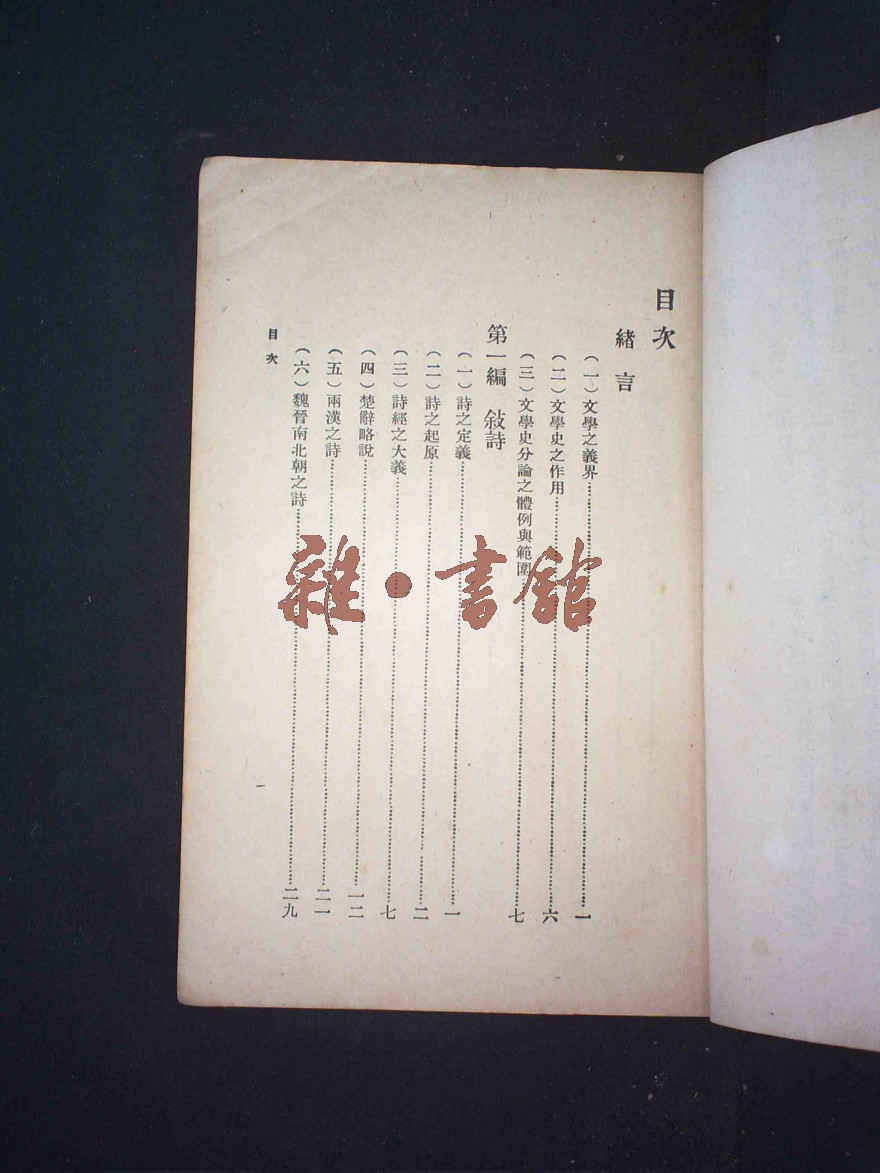 目次
緒言
（一）文學之義界…………一
（二）文學史之作用…………六
（三）文學史分論之體例與範圍…………七
第一編 敍詩
（一）詩之定義…………一
（二）詩之起原…………二
（三）詩經之大義…………七
（四）楚辭略說…………一二
（五）兩漢之詩…………二一
（六）魏晉南北朝之詩…………二九
目次
一
雜·書館